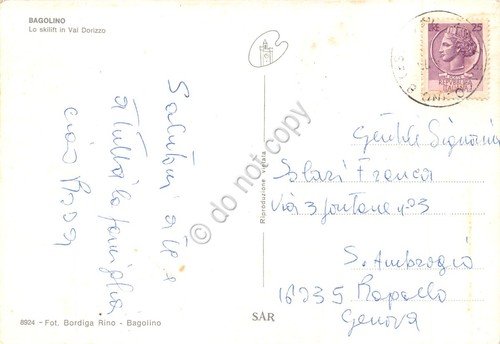 BAGOLINO
Lo skilift in Val Dorizzo
25
Saluti a lei e
a tutta la famiglia
ciao Rosa
8924 - Fot. Bordiga Rino - Bagolino
Riproduzione vietata
SAR
Gentile Signorina
Solari Franca
Via 3 fontane n° 23
S. Ambrogio
16035 Rapallo
Genova
do not copy